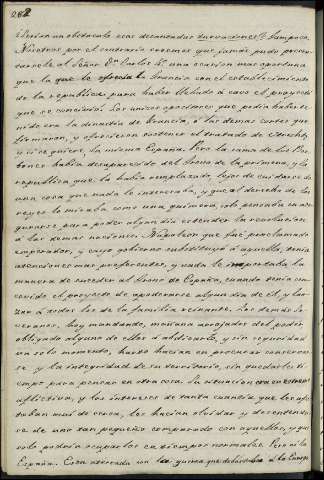 282
¿Serian un obstaculo esas decantadas innovaciones? Tampoco.
Nosotros por el contrario creemos que jamás pudo presen-
tarsele al Señor Dn. Carlos 4º una ocasion mas oportuna
que la que le ofrecia la Francia con el establecimiento
de la republica para haber llebado a cavo el proyecto
que se concivió. Las unicas oposiciones que podia haber te-
nido era la dinastia de Francia, ó las demas cortes que
firmaron, y ofrecieron sostener el tratado de Utrecht,
ó si se quiere la misma España. Pero la rama de los Bor-
bones habia desaparecido del trono de la primera, y la
republica que la habia remplazado, lejos de cuidarse de
una cosa que nada le interesaba, y que al derecho de los
reyes lo miraba como una quimera, solo pensaba en ase-
gurarse para poder algun dia estender la revolucion
á las demas naciones. Napoleon que fue proclamado
emperador, y cuyo gobierno substituyó á aquella, tenia
atenciones mas preferentes, y nada le importaba la
manera de suceder al trono de España, cuando tenia con-
cevido el proyecto de apoderarse algun dia de el, y lan-
zar á todos los de la familia reinante. Los demas so-
veranos, hoy mandando, mañana arrojados del poder
obligado alguno de ellos á abdicarlo, y sin seguridad
un solo momento, harto hacian en procurar conservar-
se y la integridad de su territorio, sin quedarles ti-
empo para pensar en otra cosa. Su situacion era en estremo
aflictiva, y los intereses de tanta cuantia que les agi-
taban mas de cerca, les hacian olvidar y desentender-
se de uno tan pequeño comparado con aquellos, y que
solo podria ocuparlos en tiempos normales. Pero ni la
España. Esta aterrada con la guerra que debastaba á la Europa